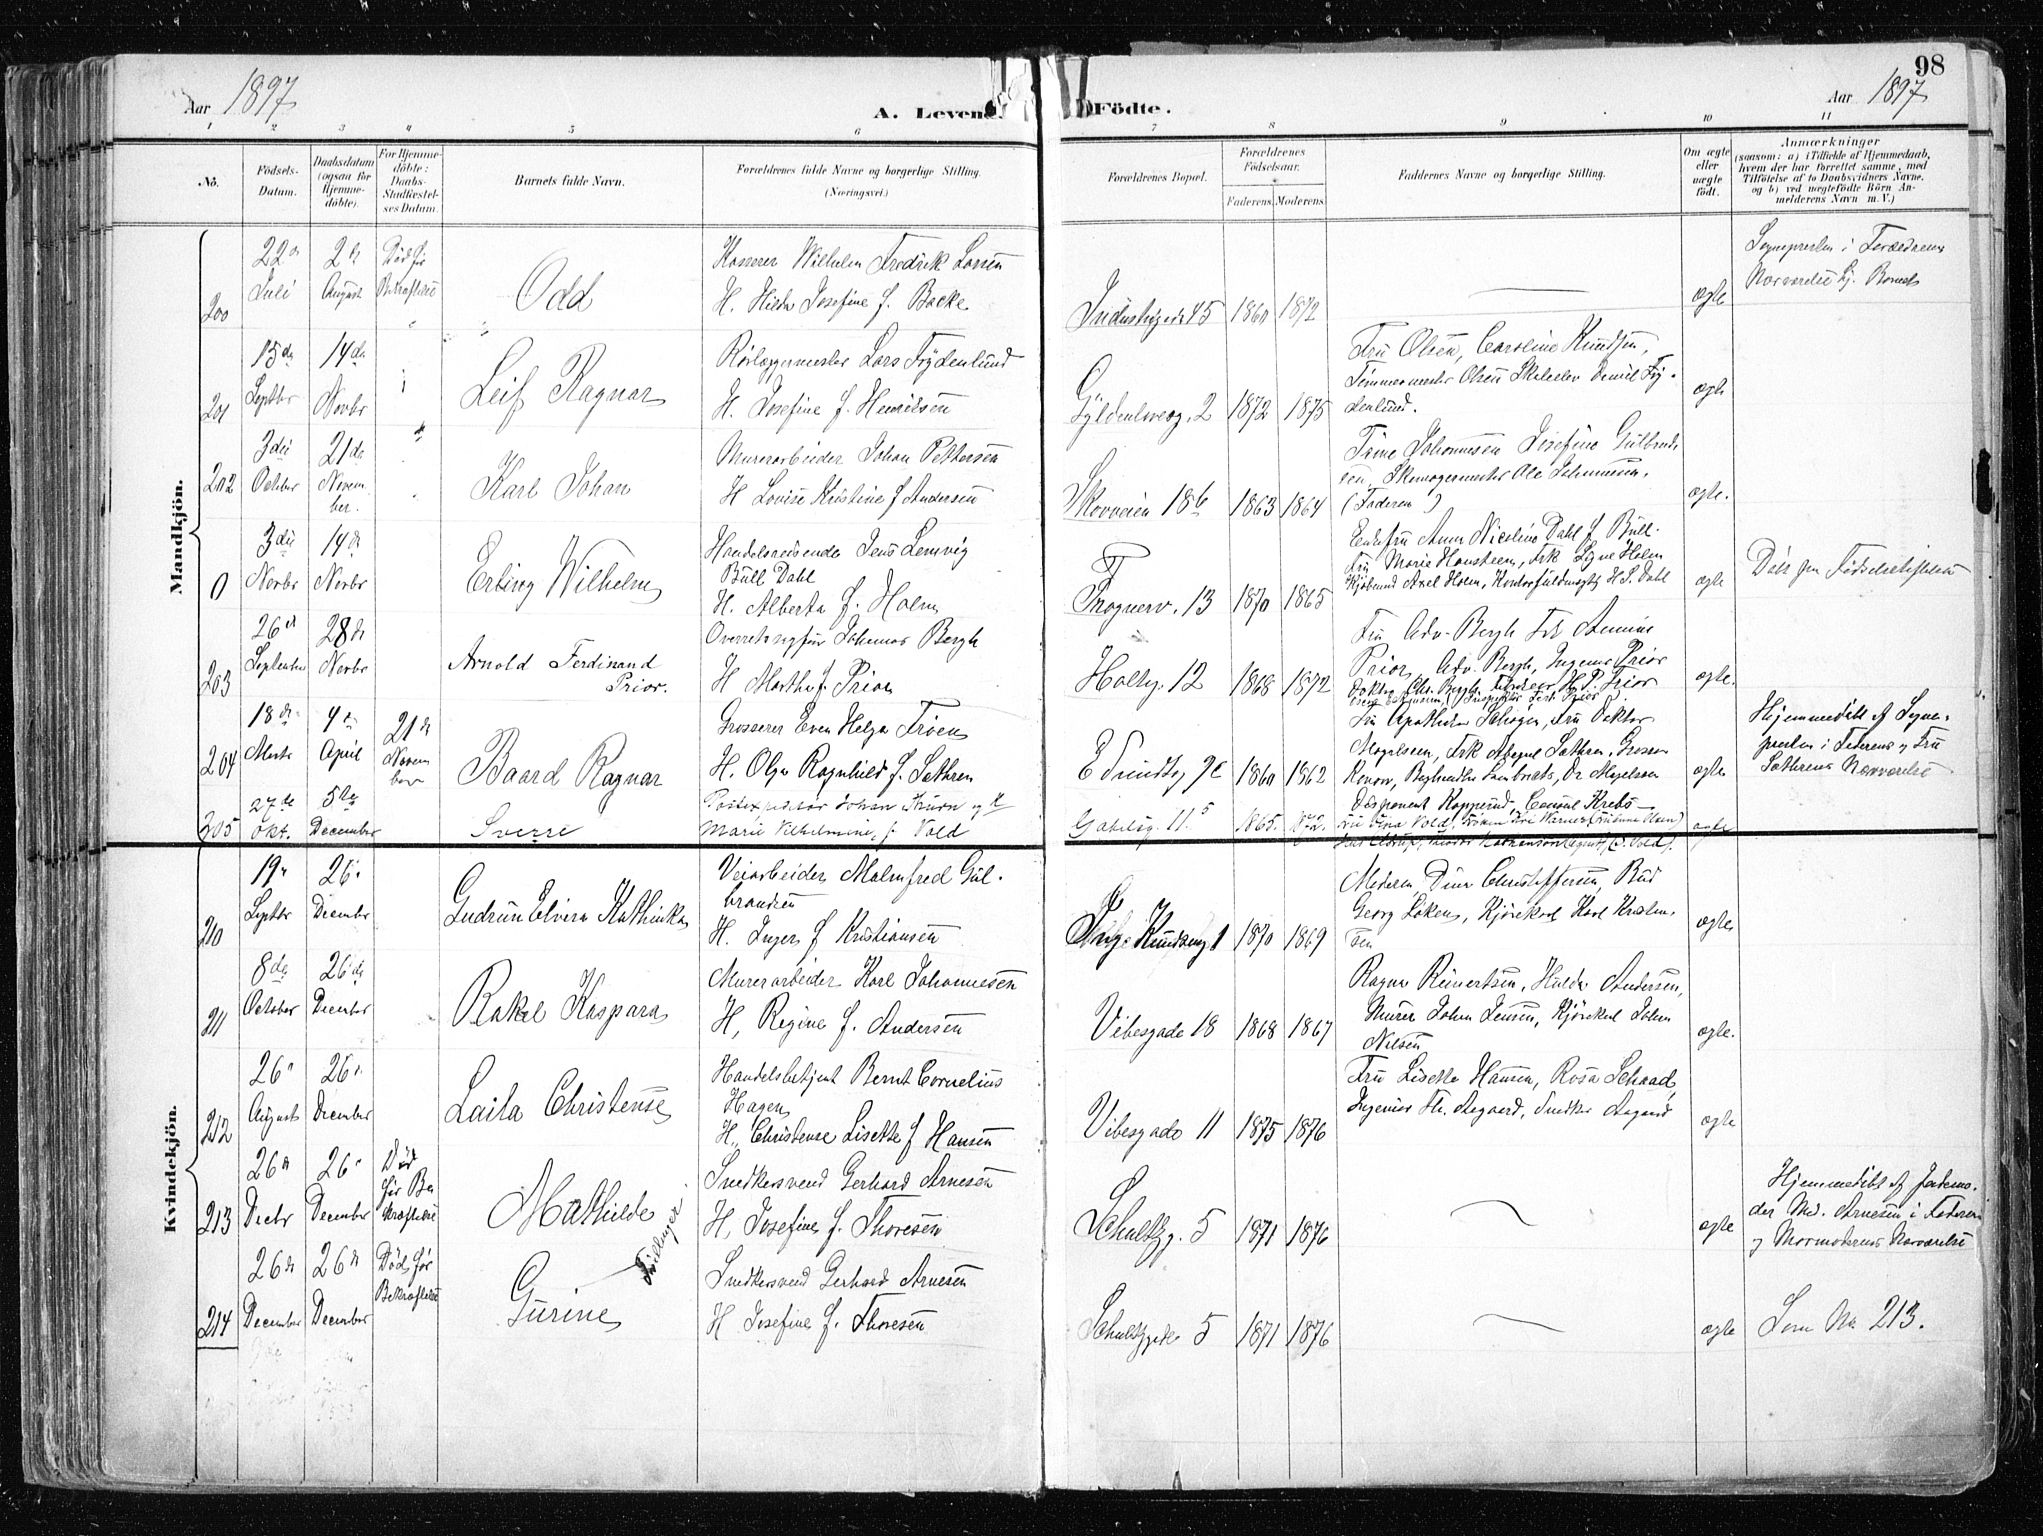 98
Aar 1897
A. Levende Födte.
Aar 1897
1 2 3 4 5 6 7 8 9 10 11
No.
Födsels-
Datum.
Daabsdatum
(ogsaa for
Hjemme-
döbte).
For Hjemme-
döbte:
Daabs-
Stadfæstel-
ses Datum.
Barnets fulde Navn.
Forældrenes fulde Navne og borgerlige Stilling.
(Næringsvei.)
Forældrenes Bopæl.
Forældrenes
Födselsaar.
Faderens. Moderens.
Faddernes Navne og borgerlige Stilling.
Om ægte
eller
uægte
födt.
Anmærkninger
(saasom: a) i Tilfælde af Hjemmedaab,
hvem der har forrettet samme, med
Tilföielse af to Daabsvidners Navne.
og b) ved uægtefödte Börn An-
melderens Navn m. V.)
Mandkjön.
200
22de
Juli
2de
August
Död før
Bekræftelse
Odd
Kasserer Wilhelm Fredrik Lassen
H. Hilda Josefine f. Backe
Industrigade 45
1860 1872
ægte
Sognepresten i Forældrenes
Nærværelse
201
15de
Septbr
14de
Novbr
Leif Ragnar
Rørlæggermester Lars Frydenlund
H. Josefine f. Henriksen
Gyldenløvesg. 2
1872 1875
Fru Olsen, Caroline Knudsen,
Tømmermester Olsen Skolelev Daniel Fry-
denlund.
ægte
202
3die
October
21de
Novem
ber.
Karl Johan
Murerarbeider Johan Pettersen
H Lovise Kristine f Andersen
Skovveien 18b
1863 1864
Trine Johannesen Josefine Gulbrand
sen, Skomagermester Ole Johannesen.
(Faderen)
ægte.
0
3die
Novbr
14de
Novbr
Erling Wilhelm
Handelsreisende Jens Lemvig
Büll Dahl
H. Alberta f. Holm
Frognerv. 13
1870 1865
Enkefru Anna Nicoline Dahl f Büll.
Fru Marie Hansteen, Frk Signe Holm
Kjøbmand Axel Holm, Kontorfuldmægtig H.S. Dahl
ægte
203
26de
September
28de
Novbr
Arnold Ferdinand
Prior.
Overretssagfører Johannes Bergh
H Martha f. Prior
Holtg. 12
1868 1872
Fru Adv. Bergh Frk Annine
Prior, Adv. Bergh, Ingeniør Prior
ægte.
204
18de
Marts
4de
April
21de
Novem
ber
Baard Ragnar
Grosserer Even Helge Frøen
H. Olga Ragnhild f. Sæthren
E Sundtsg 7c
1860 1862
Fru Apotheker Schøyen, Fru Doktor
Magelssen, Frk Sæthren, Grosserer
Disponent Kopperud, Consul Krebs
ægte
Hjemmedøbt af Sogne-
presten i Faderens og Fru
Sæthrens Nærværelse
205
27de
Okt.
5te
December
Sverre
Postexpeditør Johan Thurn og H
Marie Vilhelmine, f. Vold
Gabelsg. 11.5
1865. 1872.
ægte
Kvindekjön.
210
19de
Septbr
26de
December
Gudrun Elvira Kathinka
Veiarbeider Malmfred Gul-
brandsen
H. Inger f Kristiansen
Knudseng 1
1870 1869
Moderen, Dina Christoffersen, Bud
Georg Løken, Kjørekarl Karl Kristen-
sen
ægte
211
8de
October
26de
December
Rakel Kaspara
Murerarbeider Karl Johannesen
H, Regine f. Andersen
Vibesgade 18
1868 1867
Ragna Reinertsen, Hulda Andersen,
Murer Johan Jensen, Kjørekarl Johan
Nilsen
ægte.
212
26de
August
26de
December
Laila Christense
Handelsbetjent Bernt Cornelius
Hagen
H, Christense Lisette f Hansen
Vibesgade 11
1875 1876
Fru Lisette Hansen, Rosa Schaad,
Ingeniør Th. Aagaard, Snedker Aagaard
ægte
213
26de
Decbr
26de
December
Død
før Be
kræftelse
Mathilde
Tvillinger
Snedkersvend Gerhard Arnesen
H, Josefine f. Thoresen
Schultzg. 5
1871 1876
ægte
Hjemmedøbt af Jordemo-
der Md. Arnesen i Faderens
og Mormoderens Nærværelse
214
26de
December
26de
December
Død før
Bekræftelse
Gurine
Snedkersvend Gerhard Arnesen
H Josefine f. Thoresen
Schultzgade 5
1871 1876
ægte
Som No 213.